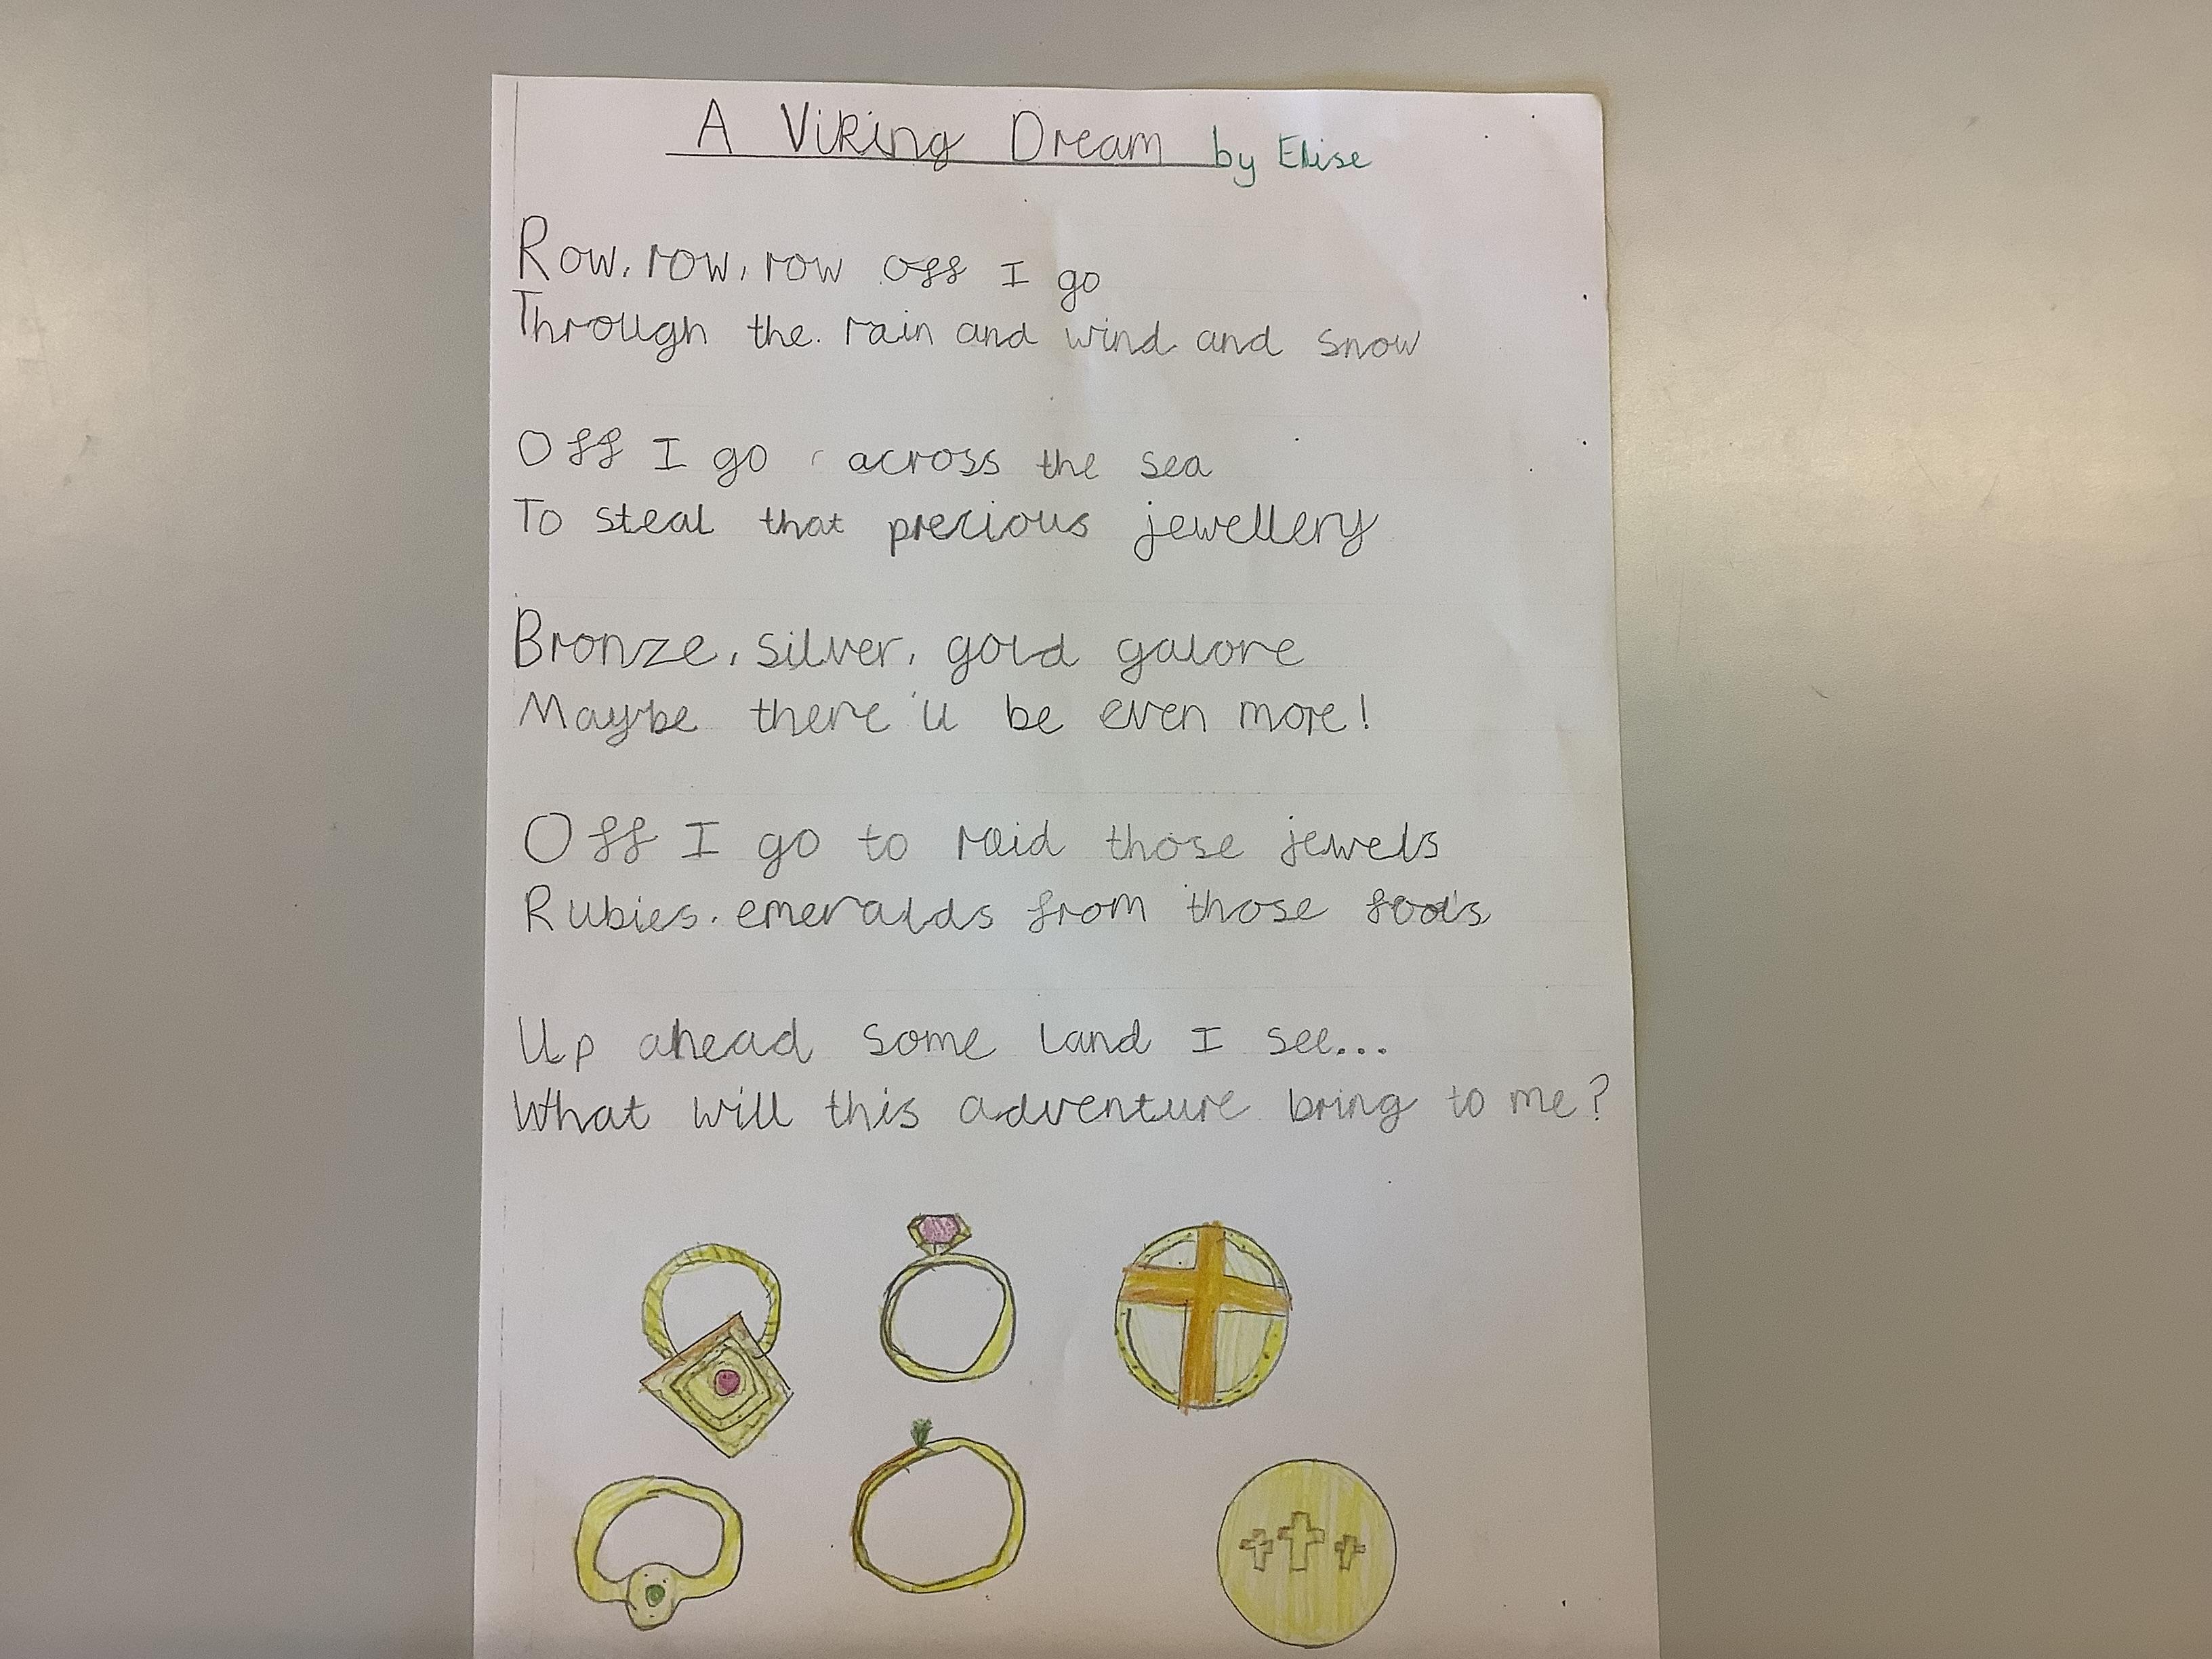 A Viking Dream by Elise
Row, row, row off I go
Through the rain and wind and snow
Off I go across the sea
To steal that precious jewellery
Bronze, silver, gold galore
Maybe there'll be even more!
Off I go to raid those jewels
Rubies, emeralds from those fools
Up ahead some land I see...
What will this adventure bring to me?